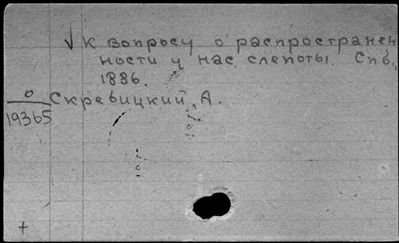 √ К вопросу о распространен
ности у нас слепоты. Спб,
1886.
0 Скревицкий, А.
19365
+